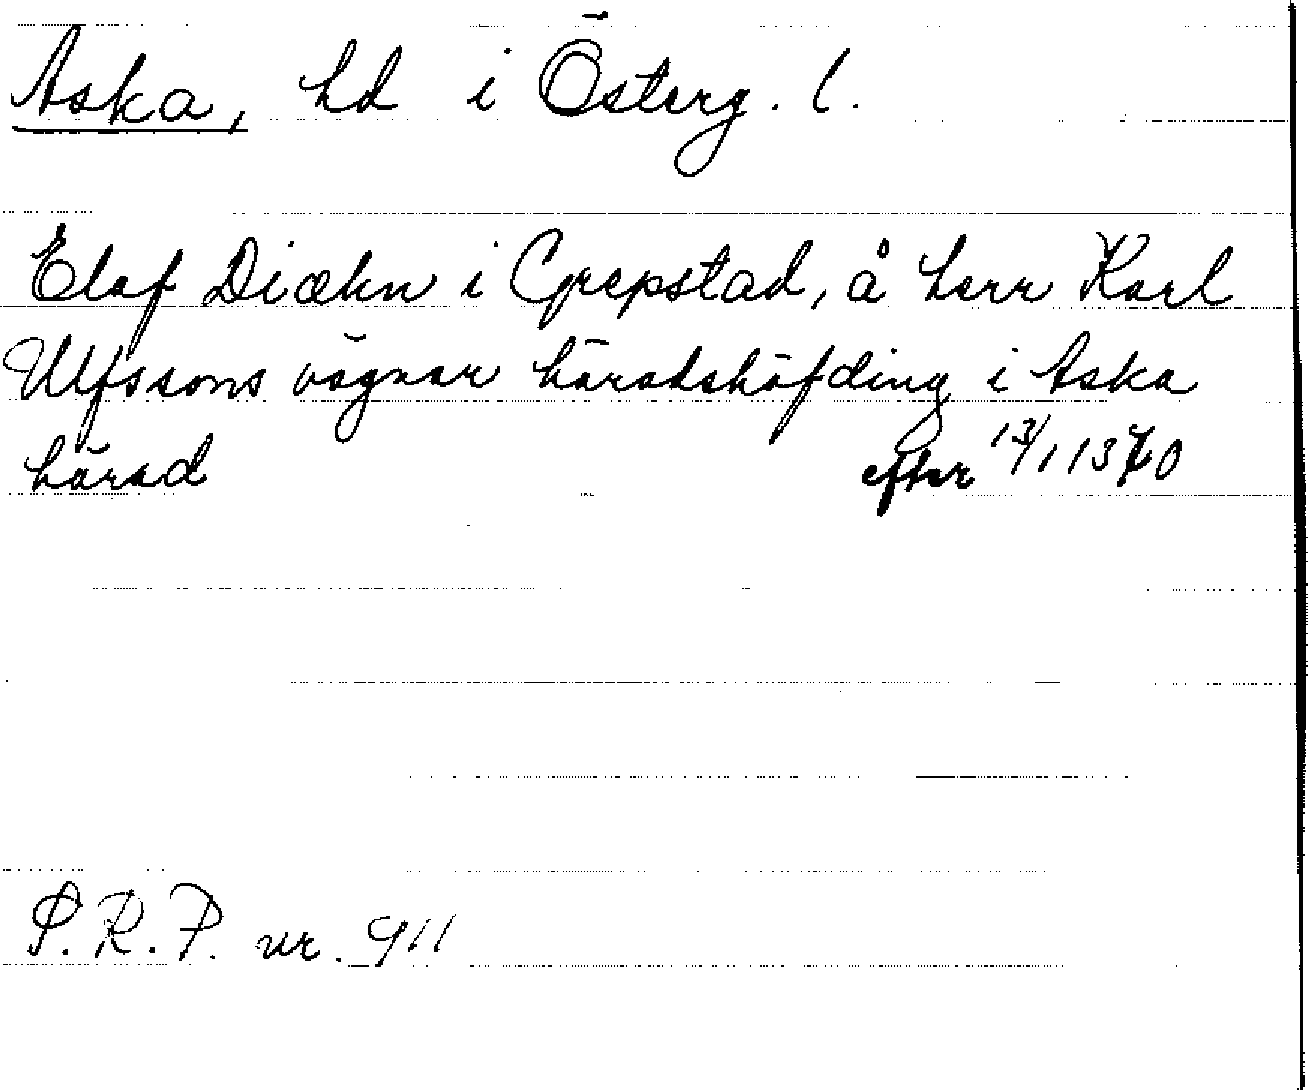 Aska, hd i Österg. l.
Elaf Diækn i Grepstad, å herr Karl
Ulfssons vägnar häradshöfding i Aska
härad efter 13/1 1370
S.R.P. nr. 911